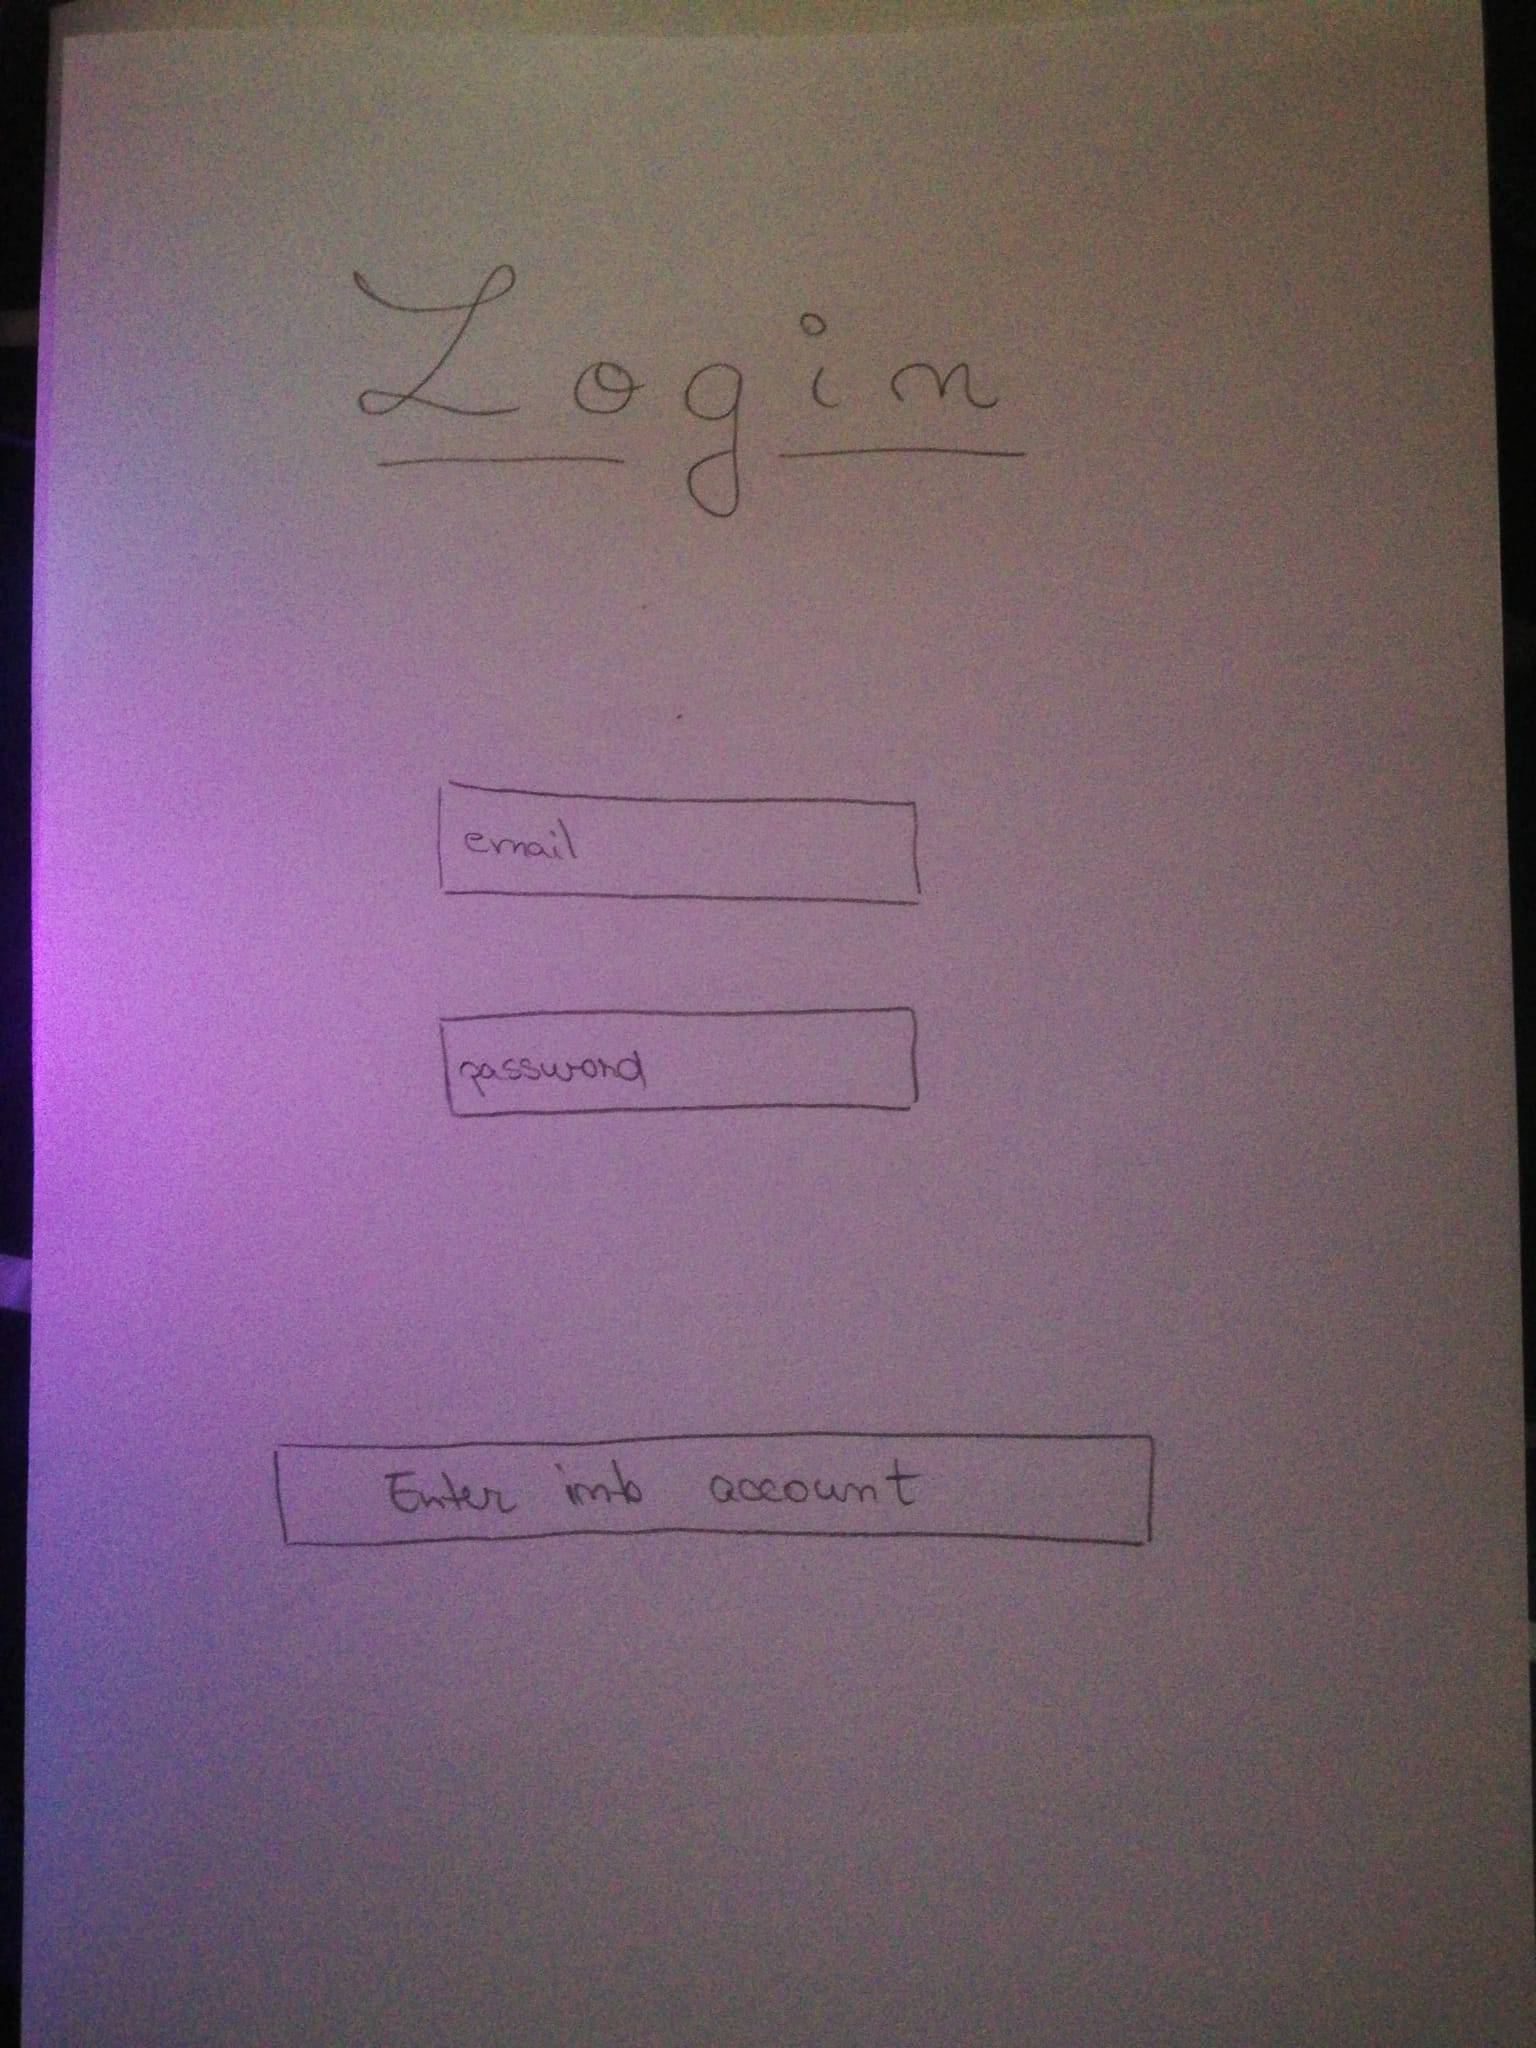 Login
email
password
Enter imb account